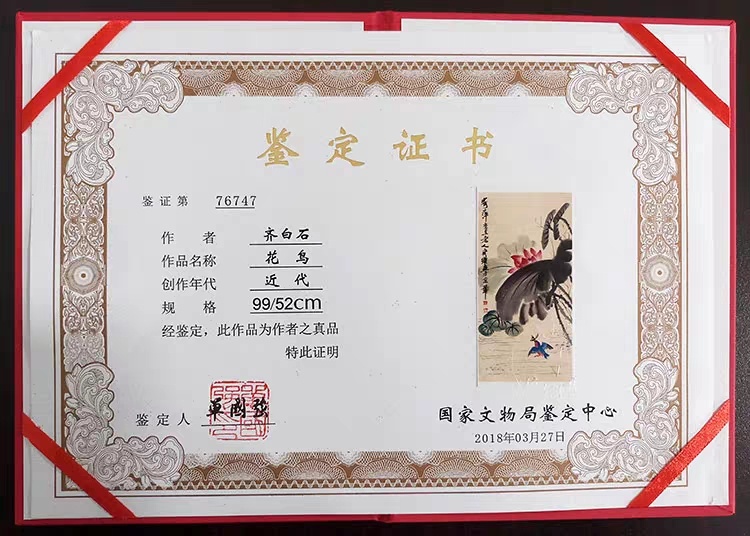 鉴定证书
鉴证第 76747
作者 齐白石
作品名称 花鸟
创作年代 近代
规格 99/52cm
经鉴定，此作品为作者之真品
特此证明
鉴定人 单国强
国家文物局鉴定中心
2018年03月27日